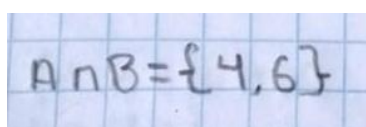 A∩B={4,6}